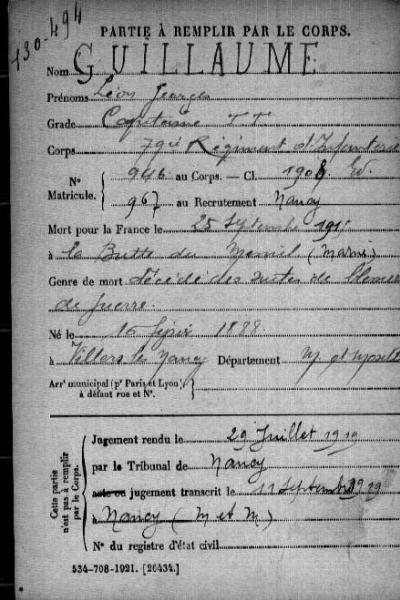 130-494
PARTIE À REMPLIR PAR LE CORPS.
Nom GUILLAUME
Prénoms Léon Georges
Grade Capitaine T T
Corps 79ie Régiment d'Infanterie
N° Matricule. 946 au Corps. — Cl. 1908
967 au Recrutement Nancy
Mort pour la France le 25 Septembre 191
à la Butte du Mesnil (Marne)
Genre de mort Décédé des suites de blessures
de guerre.
Né le 16 février 1888
à Villers les Nancy Département M. et Moselle
Arrt municipal (pr Paris et Lyon)
à défaut rue et N°.
Cette partie n'est pas à remplir par le Corps.
Jugement rendu le 29 Juillet 1919
par le Tribunal de Nancy
acte ou jugement transcrit le 11 Septembre 1919
à Nancy (M et M)
N° du registre d'état civil
534-708-1921. [26434.]